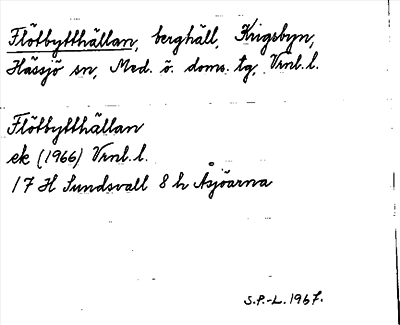 Flötbytthällan, berghäll, Krigsbyn,
Hässjö sn, Med. ö. doms. tg, Vrnl. l.
Flötbytthällan
ek (1966) Vrnl. l.
17 H Sundsvall 8 h Åsjöarna
S.P.-L. 1967.